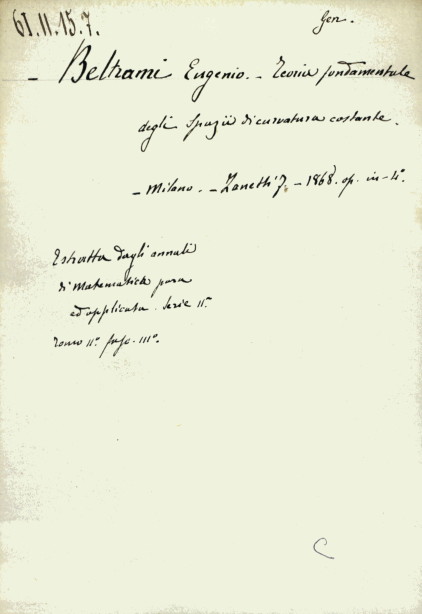 61.11.15.7.
Gen.
- Beltrami Eugenio. - Teoria fondamentale
degli spazii di curvatura costante.
- Milano. - Zanetti F. - 1868. op. in-4°.
Estratta dagli annali
di Matematica pura
ed applicata. Serie II.ª
Tomo II.° fasc. III°.
C